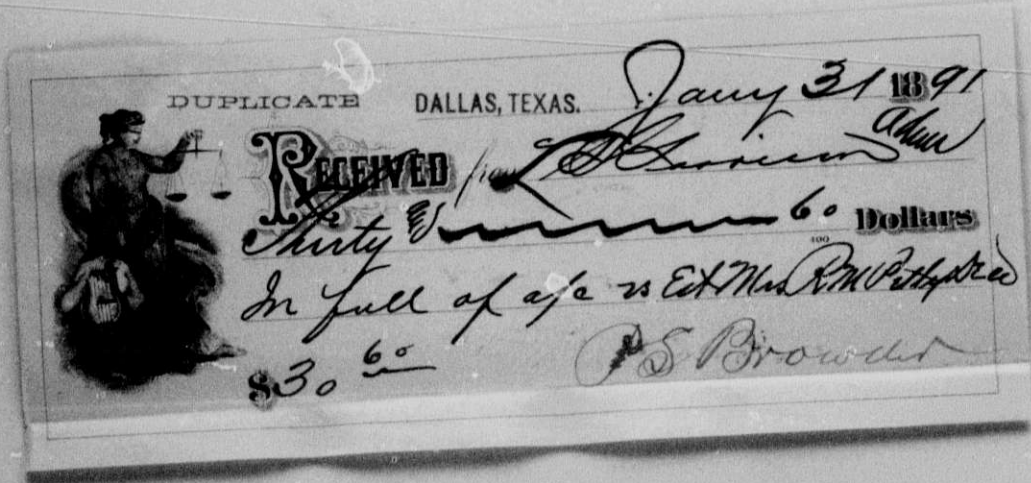 DUPLICATE DALLAS, TEXAS. Jany 31 1891
RECEIVED from L S Garrison Admr
Thirty & 60/100 Dollars
In full of a/c vs Est Mrs R M Decd
$30 60 P S Browder